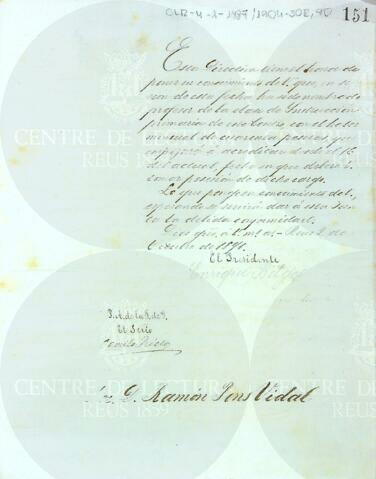 151
Esta Dirección tiene el honor de
poner en conocimiento de V. que, en se-
sion de esta fecha ha sido nombrado
profesor de la clase de Instrucción
primaria de este Centro, con el haber
mensual de cuarenta pesetas, que
empezará á acreditar desde el 15
del actual, fecha en que deberá to-
mar posesión de dicho cargo.
Lo que pongo en conocimiento de V.
esperando se servirá dar á esta Junta
su debida conformidad.
Dios gue. á V. m. as. Reus 2 de
Octubre de
El Presidente
Enrique
P. A. de la J. de G.
El Srio
Prieto
D. Ramón Pons Vidal
CENTRE DE LECTURA
REUS 1859
CENTRE DE LECTURA
REUS 1859